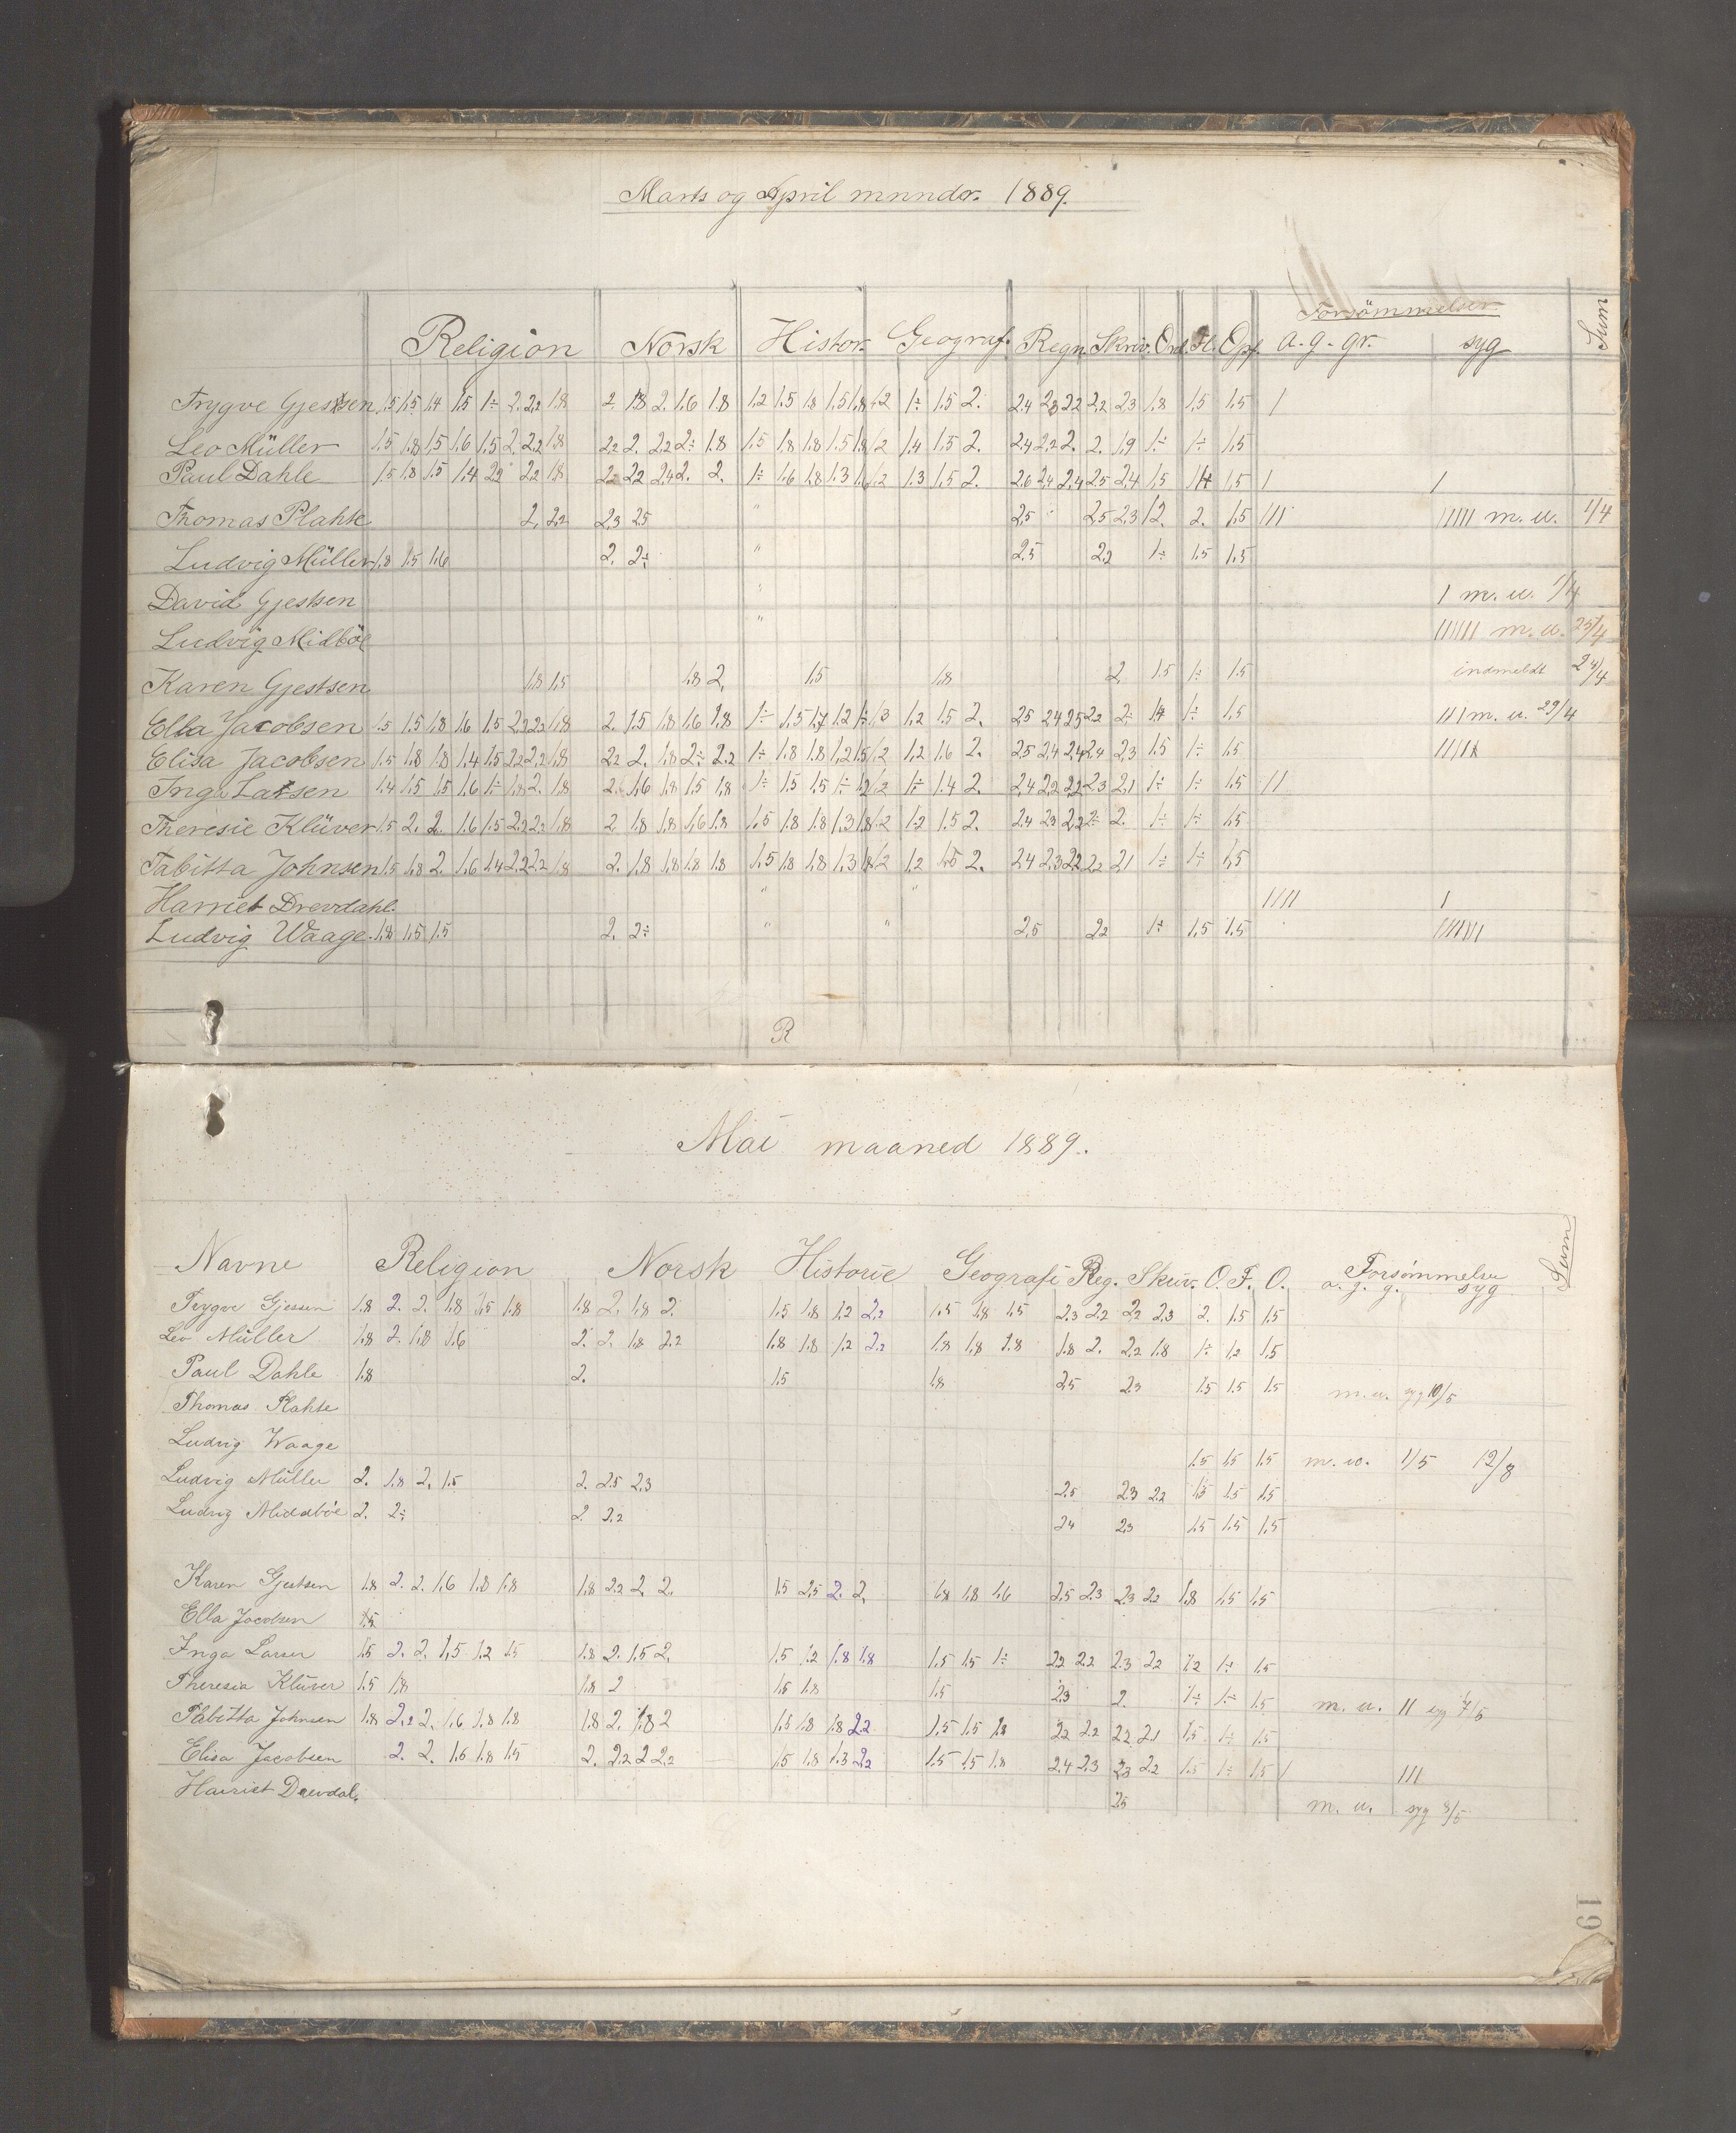 Marts og April mnnder. 1889.
Forsömmelser
Religion Norsk Histor. Geograf. Regn. Skriv. Ord. Fl. Opf. a. g. gr. syg Sum
Trygve Gjestsen 1.5 1.5 1.4 1.5 1÷ 2. 2.2 1.8 2. 1.8 2. 1.6 1.8 1.2 1.5 1.8 1.5 1.8 1.2 1÷ 1.5 2. 2.4 2.3 2.2 2.2 2.3 1.8 1.5 1.5 1
Leo Müller 1.5 1.8 1.5 1.6 1.5 2. 2.2 1.8 2.2 2. 2.2 2÷ 1.8 1.5 1.8 1.8 1.5 1.8 1.2 1.4 1.5 2. 2.4 2.2 2. 2. 1.9 1÷ 1÷ 1.5
Paul Dahle 1.5 1.8 1.5 1.4 2.2 2.2 1.8 2.2 2.2 2.4 2. 2. 1÷ 1.6 1.8 1.3 1.6 1.2 1.3 1.5 2. 2.6 2.4 2.4 2.5 2.4 1.5 1.4 1.5 1 1
Thomas Plahte 2. 2.2 2.3 2.5 " 2.5 2.5 2.3 1.2. 2. 1.5 111 11111 m. u. 1/4
Ludvig Müller 1.8 1.5 1.6 2. 2÷ " 2.5 2.2 1÷ 1.5 1.5
David Gjestsen " 1 m. u. 1/4
Ludvig Midböe " 111111 m. u. 25/4
Karen Gjestsen 1.8 1.5 1.8 2. 1.5 1.8 2. 1.5 1÷ 1.5 indmeldt 24/4
Ella Jacobsen 1.5 1.5 1.8 1.6 1.5 2.2 2.2 1.8 2. 1.5 1.8 1.6 1.8 1÷ 1.5 1.7 1.2 1÷ 1.3 1.2 1.5 2. 2.5 2.4 2.5 2.2 2÷ 1.4 1÷ 1.5 111 m. u. 29/4
Elisa Jacobsen 1.5 1.8 1.8 1.4 1.5 2.2 2.2 1.8 2.2 2. 1.8 2÷ 2.2 1÷ 1.8 1.8 1.2 1.5 1.2 1.2 1.6 2. 2.5 2.4 2.4 2.4 2.3 1.5 1÷ 1.5 11111
Inga Larsen 1.4 1.5 1.5 1.6 1÷ 1.8 2. 1.8 2. 1.6 1.8 1.5 1.8 1÷ 1.5 1.5 1÷ 1.2 1.2 1÷ 1.4 2. 2.4 2.2 2.2 2.3 2.1 1÷ 1÷ 1.5 11
Theresie Klüver 1.5 2. 2. 1.6 1.5 2.2 2.2 1.8 2. 1.8 1.8 1.6 1.8 1.5 1.8 1.8 1.3 1.8 1.2 1.2 1.5 2. 2.4 2.3 2.2 2÷ 2. 1÷ 1÷ 1.5
Tabitta Johnsen 1.5 1.8 2. 1.6 1.4 2.2 2.2 1.8 2. 1.8 1.8 1.8 1.8 1.5 1.8 1.8 1.3 1.8 1.2 1.2 1.5 2. 2.4 2.3 2.2 2.2 2.1 1÷ 1÷ 1.5
Harriet Drevdahl. " " 1111 1
Ludvig Waage. 1.8 1.5 1.5 2. 2÷ " " 2.5 2.2 1÷ 1.5 1.5 111111
R
Mai maaned 1889.
Navne Religion Norsk Historie Geografi Reg. Skriv. O. F. O. Forsömmelse Sum
a. g. g. syg
Trygve Gjessen 1.8 2. 2. 1.8 1.5 1.8 1.8 2. 1.8 2. 1.5 1.8 1.2 2.2 1.5 1.8 1.5 2.3 2.2 2.2 2.3 2. 1.5 1.5
Leo Müller 1.8 2. 1.8 1.6 2. 2. 1.8 2.2 1.8 1.8 1.2 2.2 1.8 1.8 1.8 1.8 2. 2.2 1.8 1÷ 1.2 1.5
Paul Dahle 1.8 2. 1.5 1.8 2.5 2.3 1.5 1.5 1.5 m. u. syg 10/5
Thomas Plahte
Ludvig Waage 1.5 1.5 1.5 m. u. 1/5 12/8
Ludvig Müller 2. 1.8 2. 1.5 2. 2.5 2.3 2.5 2.3 2.2 1.5 1.5 1.5
Ludvig Middböe 2. 2÷ 2. 2.2 2.4 2.3 1.5 1.5 1.5
Karen Gjestsen 1.8 2. 2. 1.6 1.8 1.8 1.8 2.2 2. 2. 1.5 2.5 2. 2. 1.8 1.8 1.6 2.5 2.3 2.3 2.2 1.8 1.5 1.5
Ella Jacobsen 1.5
Inga Larsen 1.5 2. 2. 1.5 1.2 1.5 1.8 2. 1.5 2. 1.5 1.2 1.8 1.8 1.5 1.5 1÷ 2.2 2.2 2.3 2.2 1.2 1÷ 1.5
Theresia Klüver 1.5 1.8 1.8 2 1.5 1.8 1.5 2.3 2. 1÷ 1÷ 1.5 m. u. 11 syg 7/5
Tabitta Johnsen 1.8 2.2 2. 1.6 1.8 1.8 1.8 2. 1.8 2 1.5 1.8 1.8 2.2 1.5 1.5 1.8 2.2 2.2 2.2 2.1 1.5 1÷ 1.5
Elisa Jacobsen 2. 2. 1.6 1.8 1.5 2. 2.2 2 2.2 1.5 1.8 1.3 2.2 1.5 1.5 1.8 2.4 2.3 2.3 2.2 1.5 1÷ 1.5 1 111
Harriet Drevdal. 2.5 m. u. syg 8/5
19